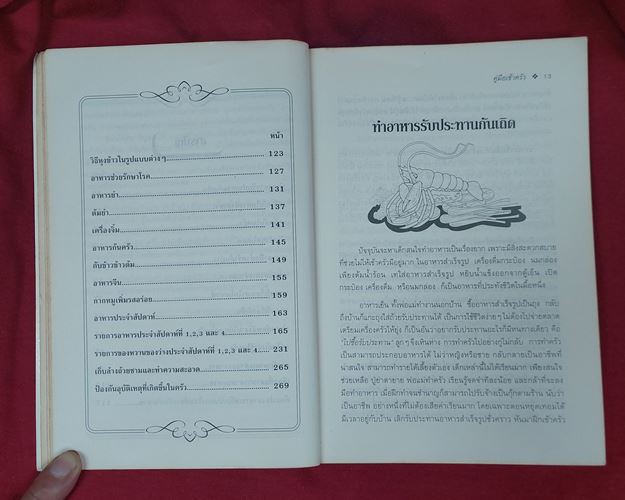 หน้า
วิธีหุงข้าวในรูปแบบต่างๆ 123
อาหารช่วยรักษาโรค 127
อาหารยำ 131
ต้มยำ 137
เครื่องจิ้ม 141
อาหารก้นครัว 145
กับข้าวข้าวต้ม 149
อาหารจีน 155
กากหมูเพิ่มรสอร่อย 159
อาหารประจำสัปดาห์ 163
รายการอาหารประจำสัปดาห์ที่ 1,2,3 และ 4 165
รายการของหวานของว่างประจำสัปดาห์ที่ 1,2,3 และ 4 231
เก็บล้างถ้วยชามและทำความสะอาด 265
ป้องกันอุบัติเหตุที่เกิดขึ้นในครัว 269
คู่มือเข้าครัว ❖ 13
ทำอาหารรับประทานกันเถิด
ปัจจุบันจะหาเด็กสนใจทำอาหารเป็นเรื่องยาก เพราะมีสิ่งสะดวกสบาย
ที่ช่วยไม่ให้เข้าครัวมีอยู่มาก ในอาหารสำเร็จรูป เครื่องดื่มกระป๋อง นมกล่อง
เพียงต้มน้ำร้อน เทใส่อาหารสำเร็จรูป หยิบน้ำแข็งออกจากตู้เย็น เปิด
กระป๋อง เครื่องดื่ม หรือนมกล่อง ก็เป็นอาหารที่ประทังชีวิตในมื้อหนึ่ง
อาหารเย็น ทั้งพ่อแม่ทำงานนอกบ้าน ซื้ออาหารสำเร็จรูปเป็นถุง กลับ
ถึงบ้านก็แกะถุงใส่ถ้วยรับประทานได้ เป็นการใช้ชีวิตง่ายๆ ไม่ต้องไปจ่ายตลาด
เตรียมเครื่องครัวให้ยุ่ง ก็เป็นอันว่าอยากรับประทานอะไรก็มีหนทางเดียว คือ
"ไปซื้อรับประทาน" ลูกๆ จึงเห็นห่าง การครัวไปอย่างกู่ไม่กลับ การทำครัว
เป็นสามารถประกอบอาหารได้ ไม่ว่าหญิงหรือชาย กลับกลายเป็นอาชีพที่
น่าสนใจ สามารถทำรายได้เลี้ยงตัวเอง เด็กเหล่านี้ไม่ได้เรียนมาก เพียงสนใจ
ช่วยเหลือ ปู่ย่าตายาย พ่อแม่ทำครัว เรียนรู้จดจำทีละน้อย และกล้าที่จะลง
มือทำอาหาร เมื่อฝึกทำจนชำนาญก็สามารถไปรับจ้างเป็นกุ๊กตามร้าน นับว่า
เป็นอาชีพ อย่างหนึ่งที่ไม่ต้องเสียค่าเรียนมาก โดยเฉพาะตอนหยุดเทอมได้
มีเวลาอยู่กับบ้าน เลิกรับประทานอาหารสำเร็จรูปชั่วคราว หันมาฝึกเข้าครัว